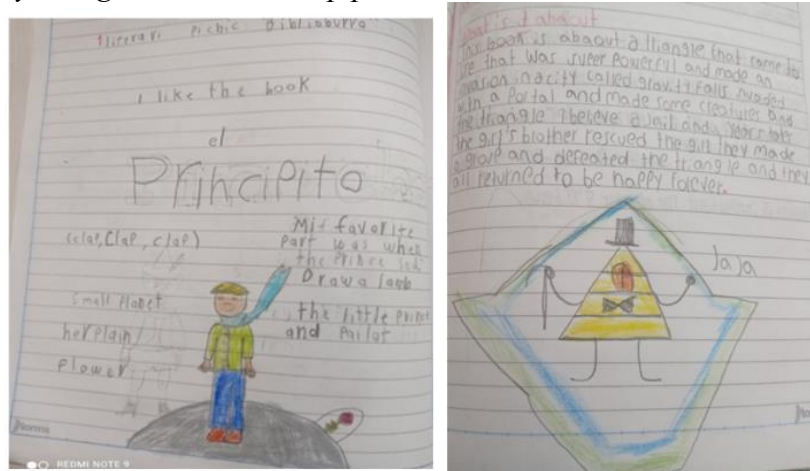 literari Picnic Biblioburro
I like the book
el
Principito
(clap, Clap, clap)
Mit favorite
part was when
the Prince sed
Draw a lamb
Small Planet
the little Prince
and Pailot
her plain
plower
Norma
REDMI NOTE 9
What is it about
This book is abaout a triangle that came to
life that was super powerful and made an
invasion in a city called gravity falls invaded
with a Portal and made some creatures and
the triangle I believe a Jail and a Year later
the girl's brother rescued the girl they made
a group and defeated the triangle and they
all returned to be happy forever.
JaJa